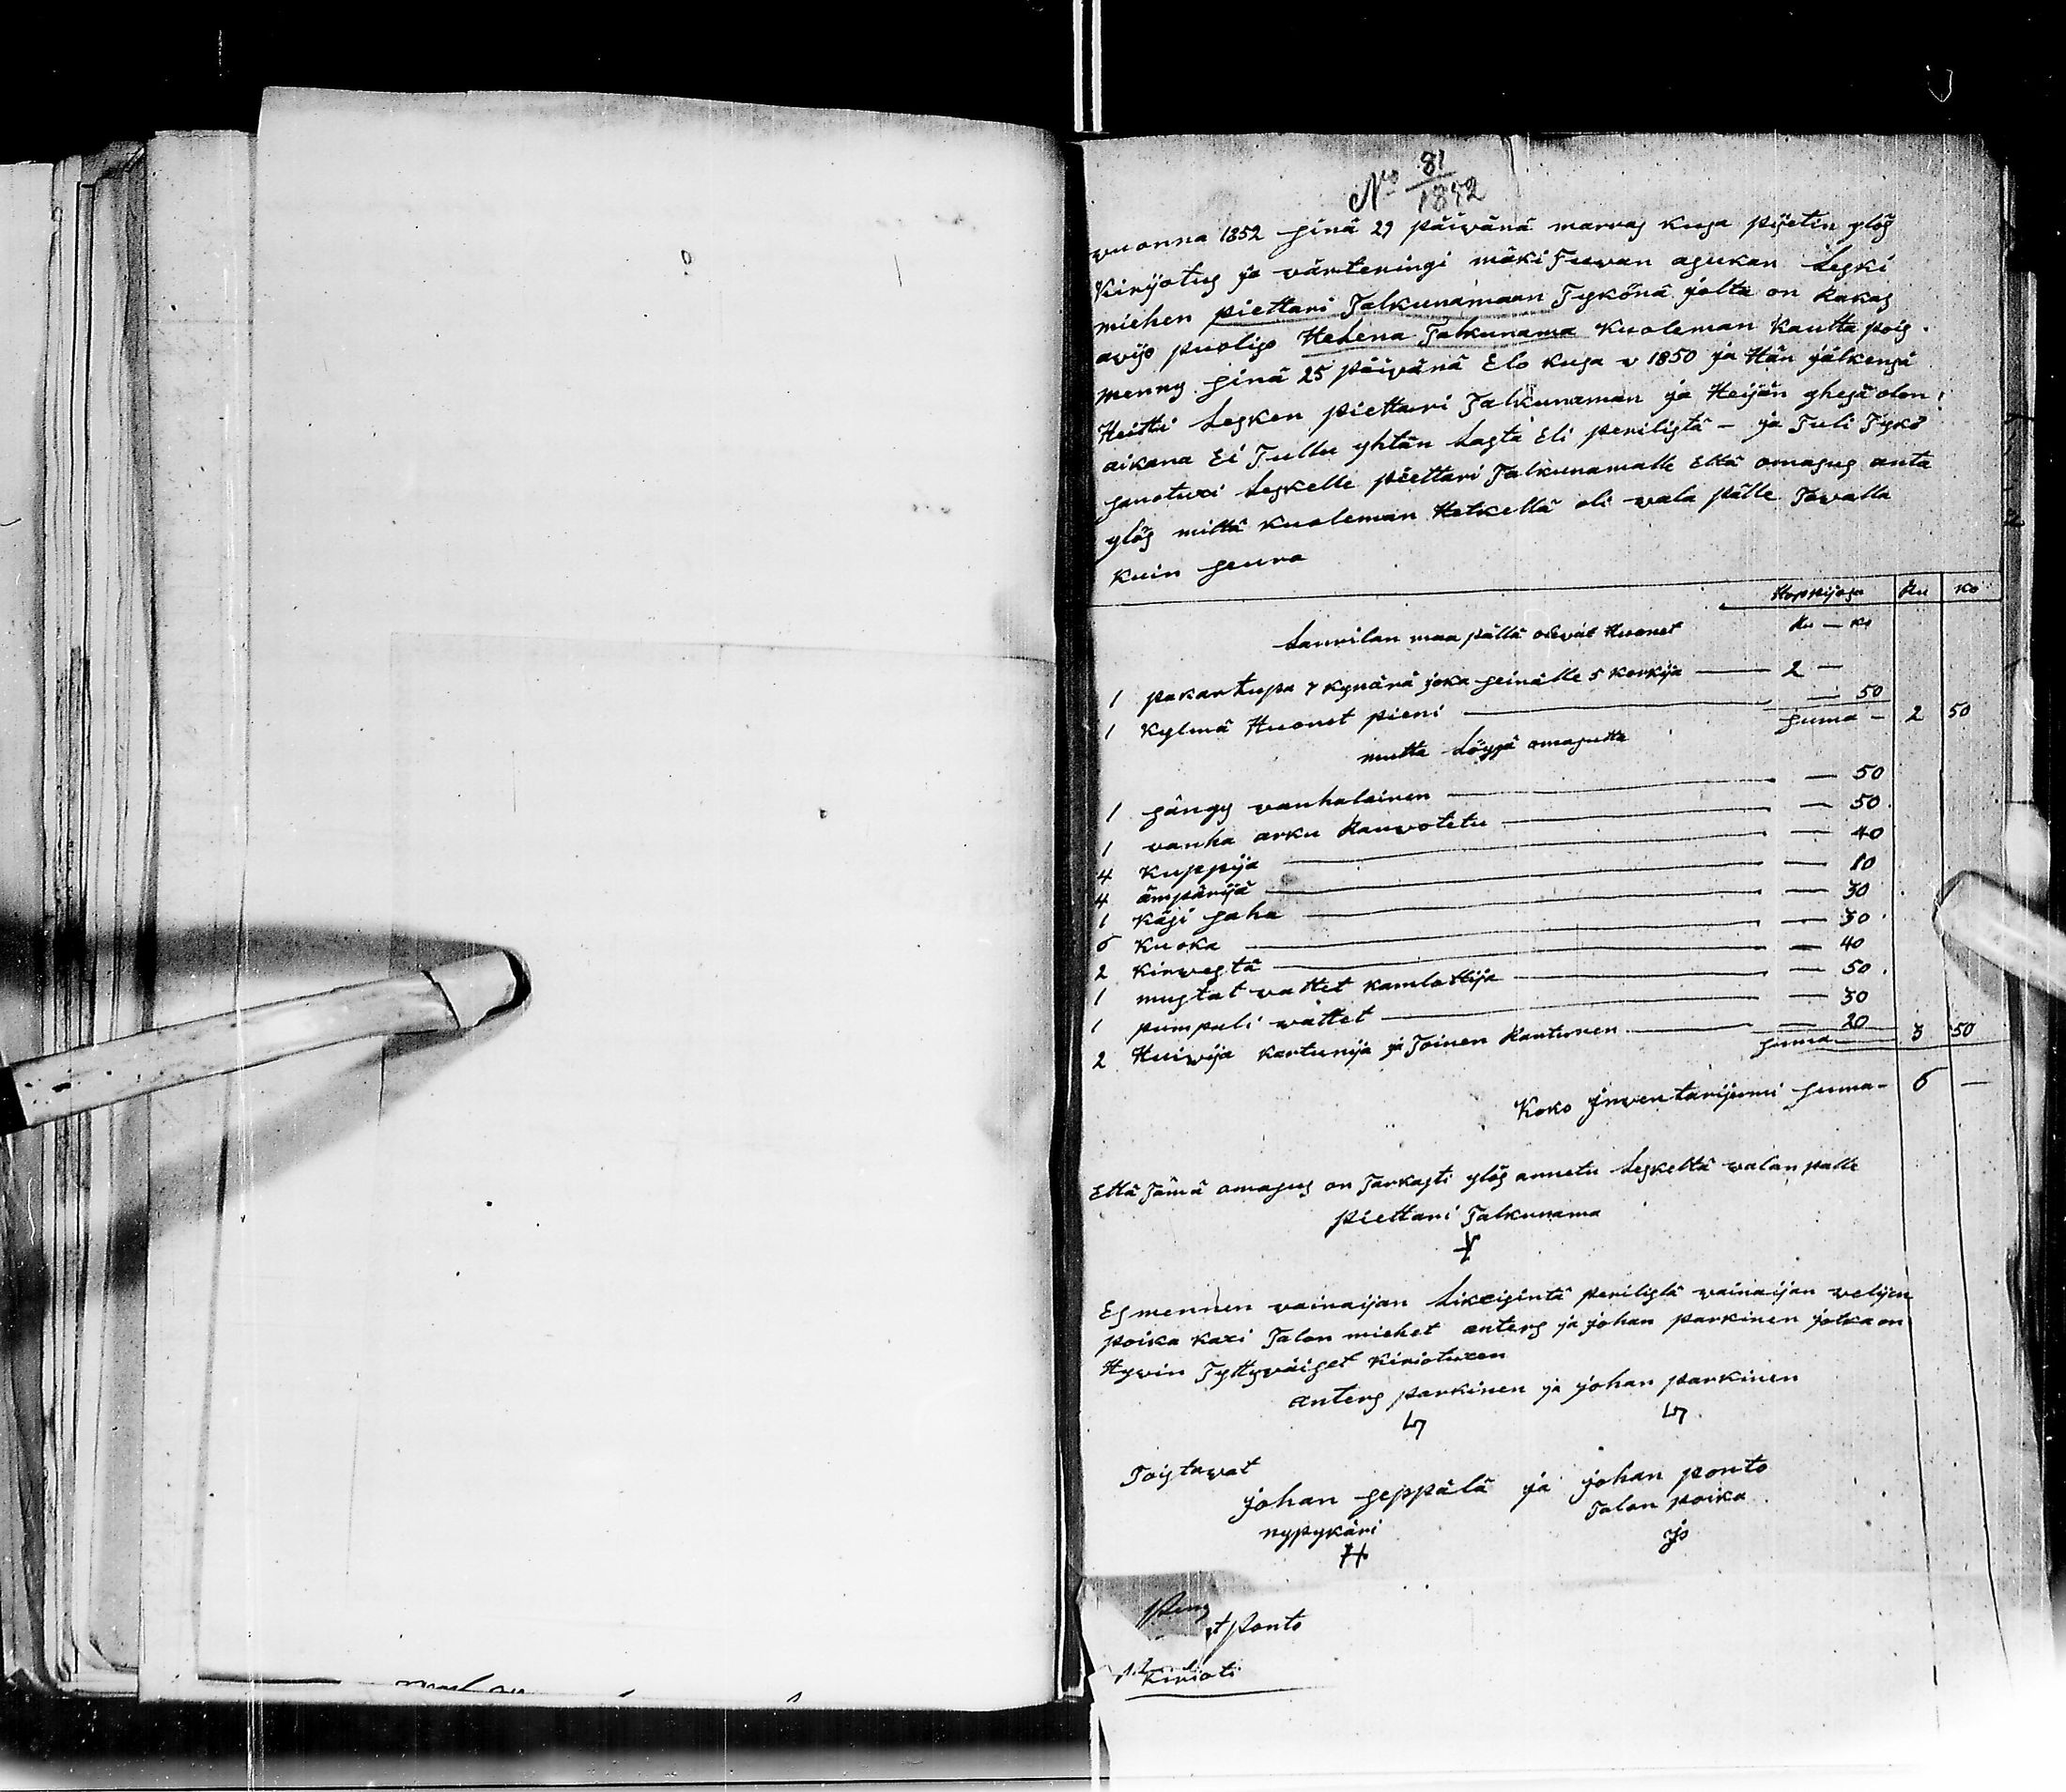 No 81
1852
wuonna 1852 sinä 29 päivänä marras kusa pijetin ylös
Kirjotus ja värteringi mäki Tuvan asukan Leski
miehen piettari Talkunamaan Tykönä jolta on Rakas
avijo puoliso Helena Talkunama Kuoleman Kautta pois
menny sinä 25 päivänä Elo kusa v 1850 ja Hän jälkensä
Heitti Lesken piettari Talkunaman ja Heijän yhesä olon
aikana Ei Tullu yhtän Lasta Eli perilistä – ja Tuli Tykö
sanotuxi Leskelle piettari Talkunamalle Että omasus anta
ylös mittä Kuoleman Hetkellä oli vala pälle Tavalla
kuin seura
Hoppijasa Ru Ko
Laurilan maa pällä olevat Huonet Ru – Ko
1 pakartupa 7 kynärä joka seinälle 5 korkija — 2 —
1 Kylmä Huonet pieni — 50
suma – 2 50
mutta Löysä omasutta
1 sängy vanhalainen — 50
1 vanha arku Rauvotetu — 50
4 Kuppija — 40
4 ämpärijä — 10
1 Käsi saha — 30
6 Kuoka — 30
2 Kirvestä — 40
1 mustat vattet kamlottija — 50
1 pumpuli wättet — 30
2 Huivija kartunija ja Toinen Rantunen — 20
suma 3 50
Koko jnventarijumi suma – 6 —
Että Tämä omasus on Tarkasti ylös annetu Leskeltä valan palle
piettari Talkunama
Esmennen vainaijan Likeisintä perilistä vainaijan velijen
poika kaxi Talon miehet anters ja johan parkinen jotka on
Hyvin Tyttyväiset Kiriotuxen
anters parkinen ja johan parkinen
Toistavat
johan seppälä ja johan ponto
nypykäri Talon poika
Ponto
Kirioti